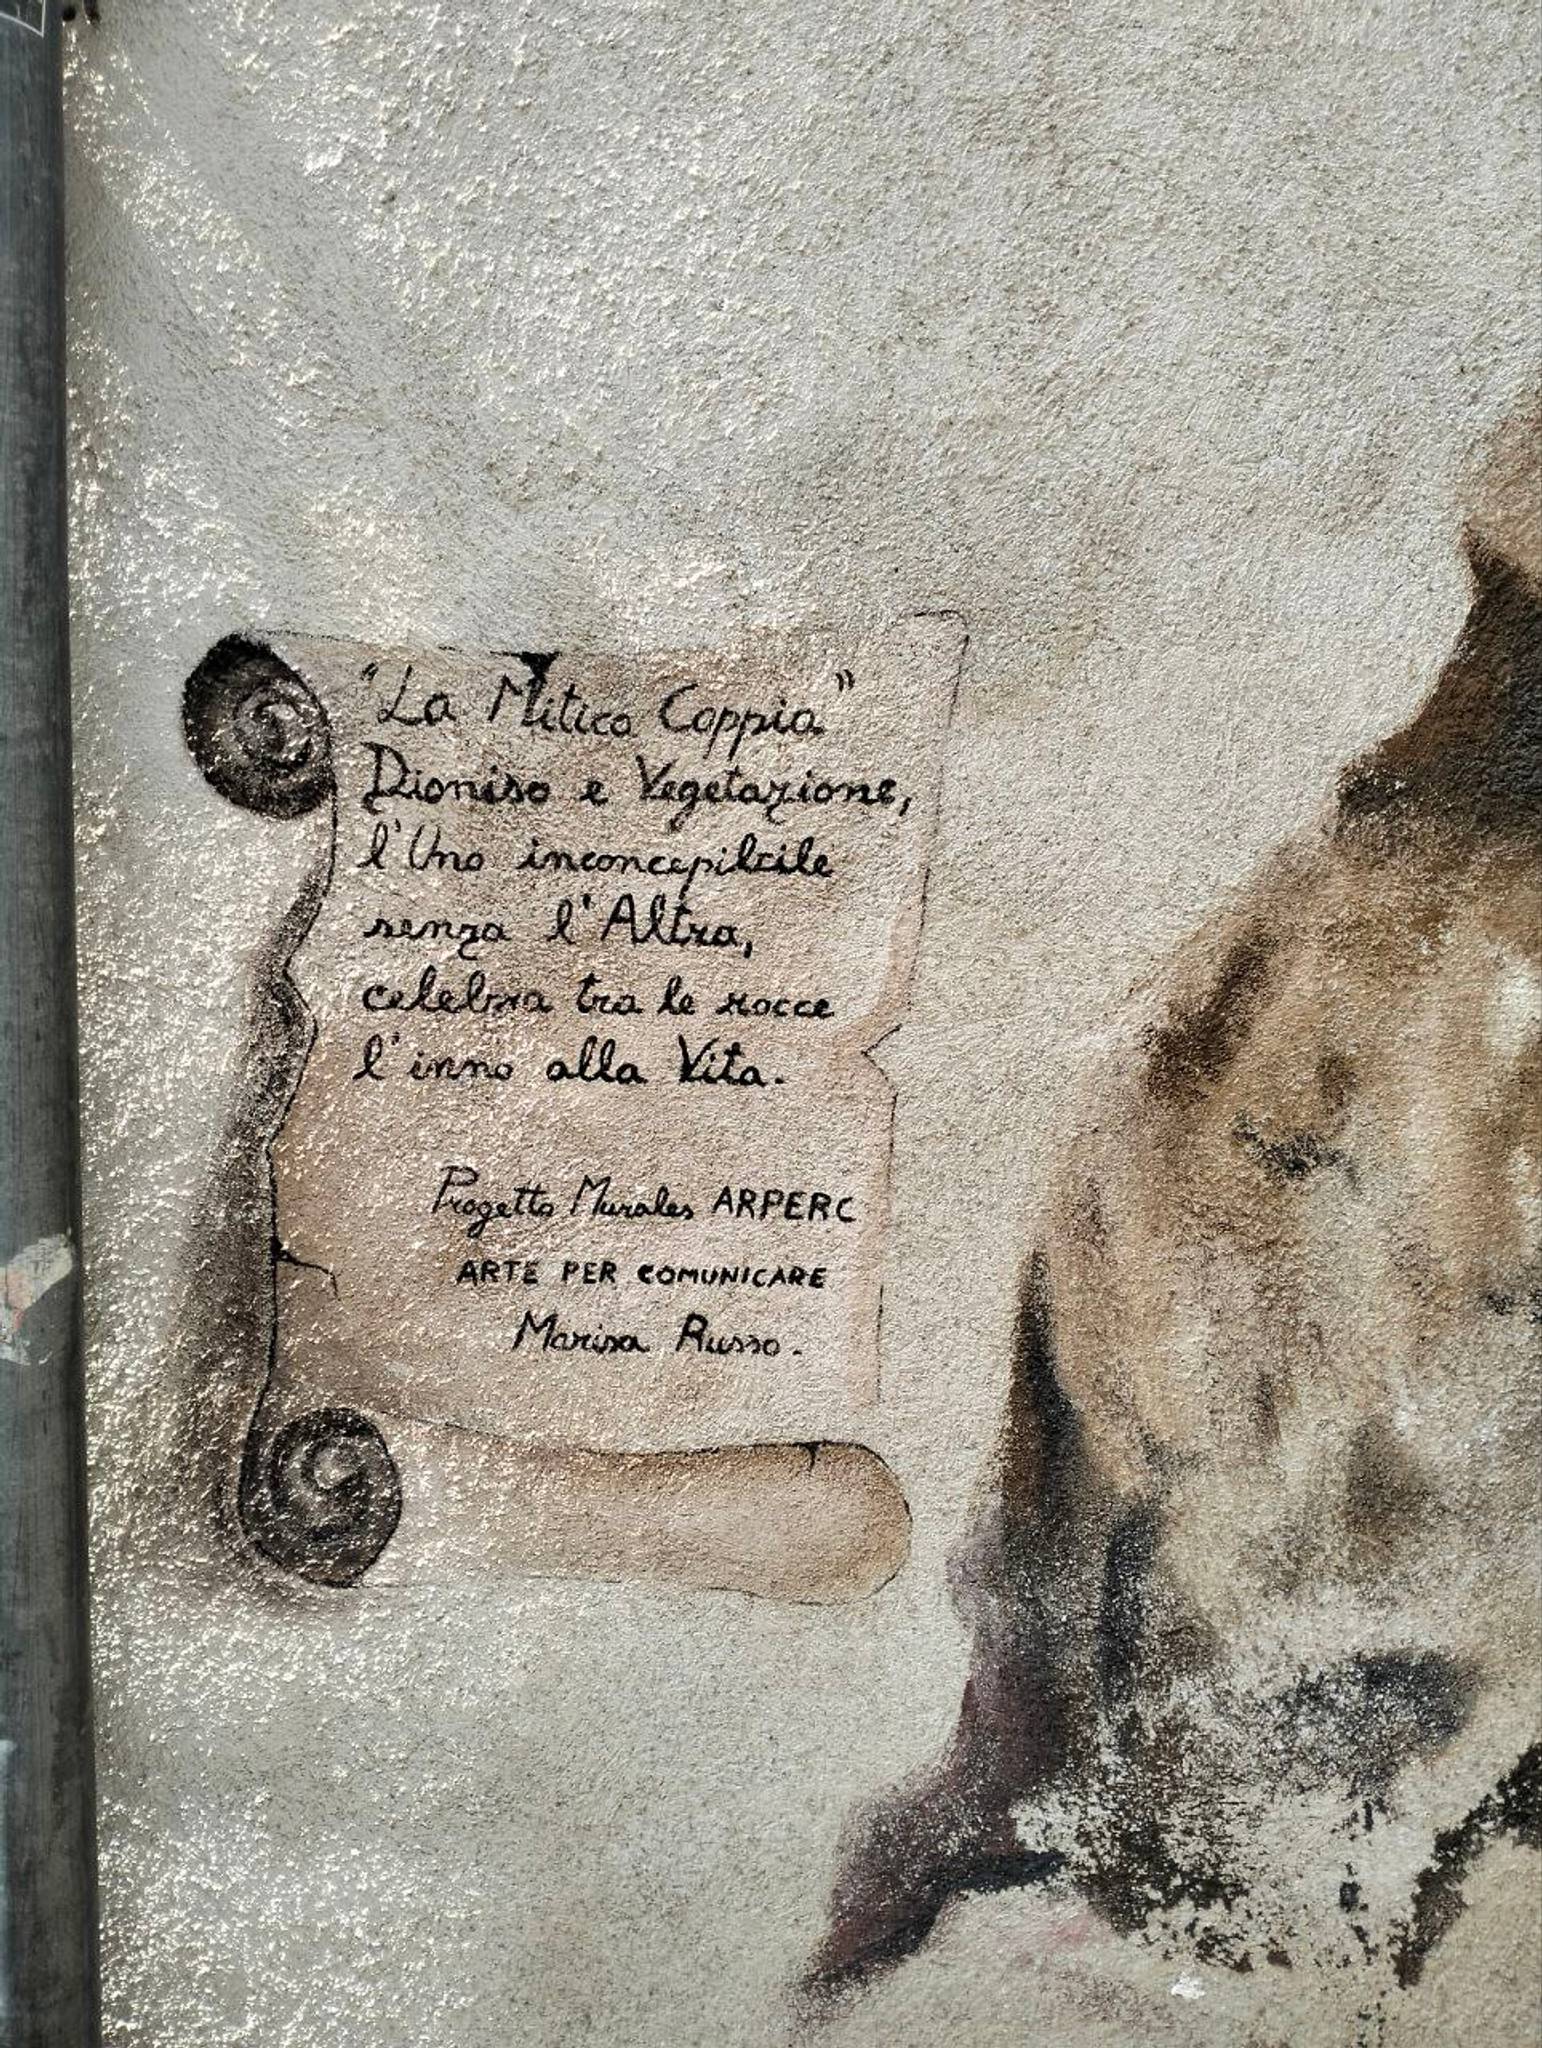 "La Mitica Coppia"
Dioniso e Vegetazione,
l'Uno inconcepibile
senza l'Altra,
celebra tra le rocce
l'inno alla Vita.
Progetto Murales ARPERC
ARTE PER COMUNICARE
Marisa Russo.